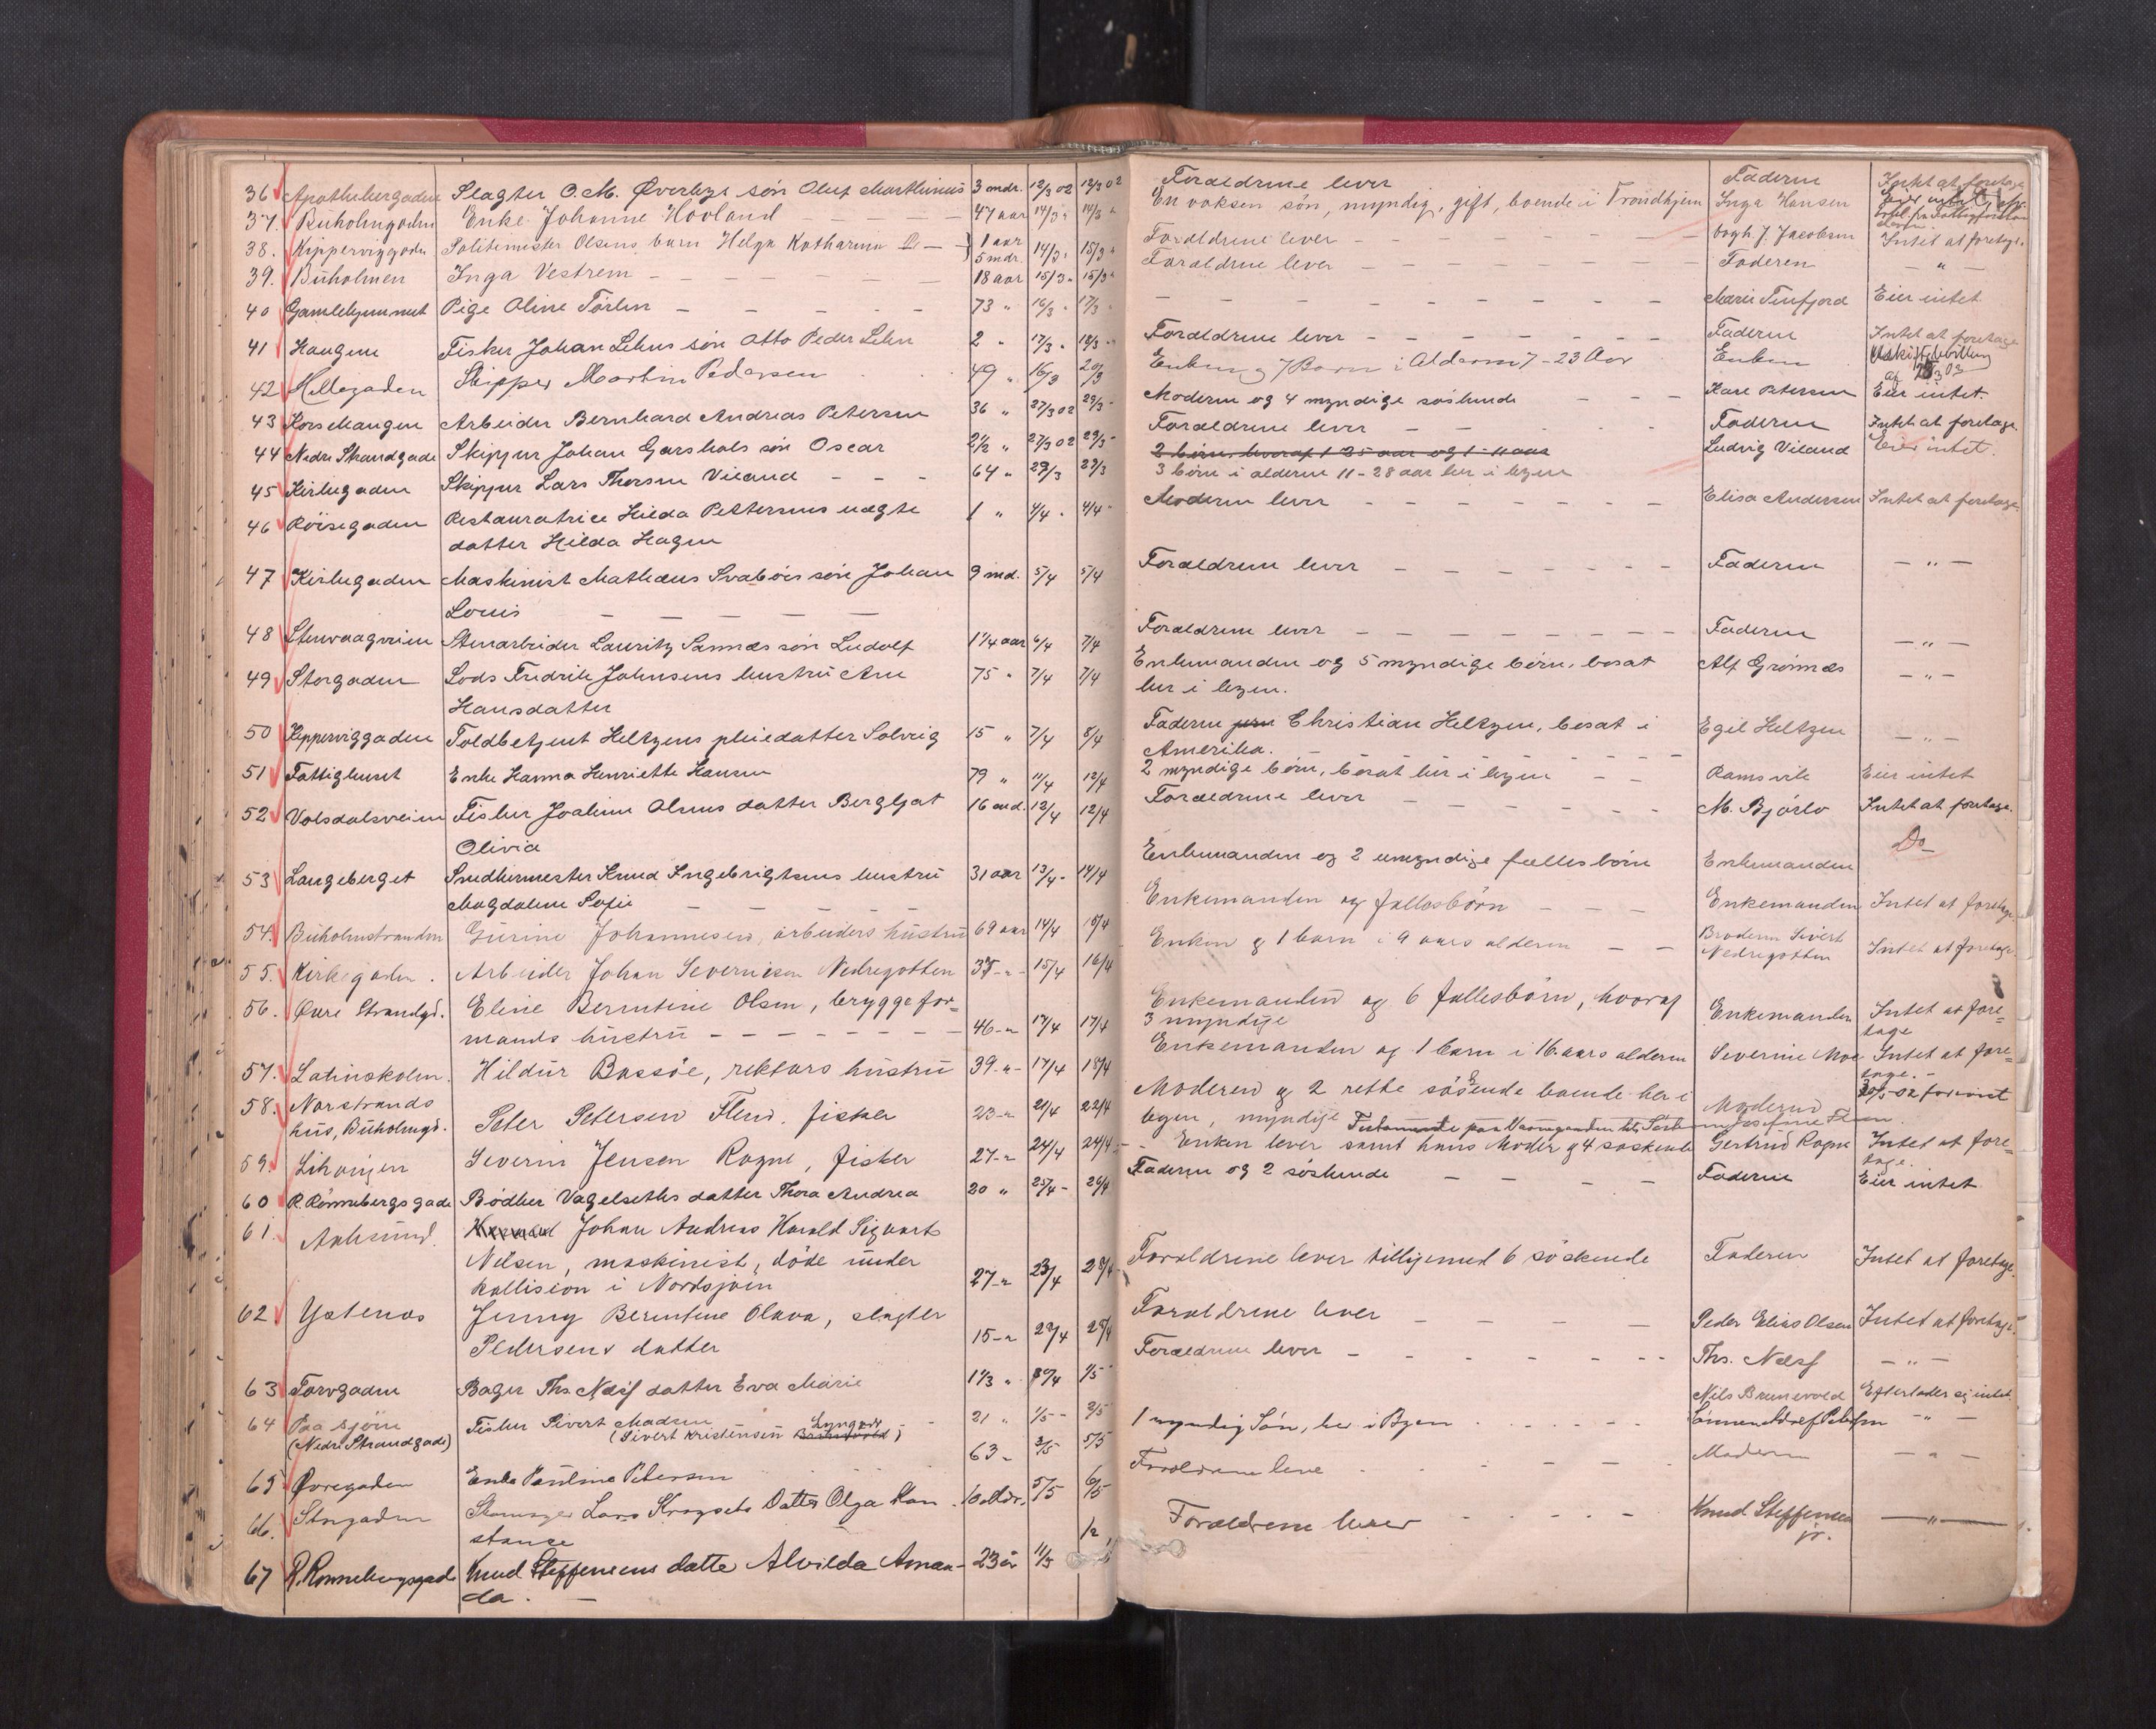 36 Apothekergaden Slagter O. M. Øverbys søn Oluf Marthinus 3 mdr. 12/3 02 12/3 02 Forældrene lever Faderen Intet at foretage
37. Buholmgaden Enke Johanne Hovland 47 aar 14/3 " 14/3 " En voksen søn, myndig, gift, boende i Trondhjem Inga Hansen Eier intet
38. Kipperviggaden Politimester Olsens barn Helga Katharina O — 1 aar 5 mdr. 14/3 " 15/3 " Forældrene lever — — — J. Jacobsen Intet at foretage.
39. Buholmen Inga Vestrem — — — 18 aar 15/3 " 15/3 " Forældrene lever — — — Faderen — " —
40 Gamlehjemmet Pige Oline Tørlen — — — 73 " 16/3 " 17/3 " — — — Marie Tenfjord Eier intet
41 Haugen Fisker Johan Lehns søn Otto Peder Lehn 2 " 17/3 " 18/3 " Forældrene lever — — — Faderen Intet at foretage
42 Hellegaden Skipper Martin Pedersen 49 " 16/3 20/3 Enken og 7 Barn i Alderen 7 - 23 Aar Enken Uskiftebevilling af 25/3 03
43 Korshaugen Arbeider Bernhard Andreas Petersen 36 " 27/3 02 29/3 " Moderen og 4 myndige søskende — — — Kare Petersen Eier intet.
44 Nedre Strandgade Skipper Johan Garshols søn Oscar 2½ " 27/3 02 29/3 " Forældrene lever — — Faderen Intet at foretage
45 Kirkegaden Skipper Lars Thorsen Vieland — — — 64 " 29/3 29/3 2 børn, hvoraf 1 25 aar og 1 - 11 aar Ludvig Viland Eier intet.
3 børn i alderen 11 - 28 aar her i byen
46 Røisegaden Restauratrice Hilda Pettersens uægte 1 " 4/4 " 4/4 " Moderen lever — — — Elisa Andersen Intet at foretage
datter Hilda Hagen
47 Kirkegaden Maskinist Mathæus Svabøes søn Johan 9 md. 5/4 5/4 Forældrene lever — — — Faderen — " —
Louis — — —
48 Stenvaagveien Stenarbeider Lauritz Sannæs søn Ludolf 1¼ aar 6/4 7/4 Forældrene lever — — — Faderen — " —
49 Storgaden Lods Fredrik Johnsens hustru Ane 75 " 7/4 7/4 Enkemanden og 5 myndige børn, bosat Alf Grønnæs — " —
Hansdatter her i byen.
50 Kipperviggaden Toldbetjent Heltzens pleiedatter Solveig 15 " 7/4 8/4 Faderen Christian Heltzen, bosat i Egil Heltzen — " —
Amerika. — — —
51 Fattighuset Enke Hanna Henriette Hansen 79 " 11/4 12/4 2 myndige børn, bosat her i byen — — Ramsvik Eier intet
52 Volsdalsveien Fisker Joakim Olsens datter Bergljot 16 md. 12/4 12/4 Forældrene lever — — — M. Bjørlo Intet at foretage.
Olivia
53 Langeberget Snedkermester Knud Ingebrigtsens hustru 31 aar 13/4 - 14/4 Enkemanden og 2 umyndige fælles børn Enkemanden Do
Magdalene Sofie — — —
54. Buholmstranden Gurine Johannesen, arbeiders hustru 69 aar 14/4 15/4 Enkemanden og fællesbørn — — — Enkemanden Intet at foretage
55. Kirkegaden. Arbeider Johan Severinsen Nedregotten 35 - " - 15/4 16/4 Enken og 1 barn i 9 aars alderen — — Broderen Sivert Nedregotten Intet at foretage
56. Øvre Strandgd. Eline Berntine Olsen, bryggefor= Enkemanden og 6 fællesbørn, hvoraf Enkemanden Intet at fore=
mands hustru — — — 46 - " 17/4 17/4 3 myndige tage
57. Latinskolen. Hildur Bassøe, rektors hustru 39 - " - 17/4 18/4 Enkemanden og 1 barn i 16. aars alderen Severine Moe Intet at fore=
tage. -
58. Norstrands Peter Petersen Flem, fisker 23 - " 21/4 22/4 Moderen og 2 rette søskende boende her i Moderen 30/5 - 02
hus, Buholmgd. byen, myndige
59. Lihaugen Severin Jensen Rogne, fisker 27 - " 24/4 24/4 Enken lever samt hans Moder og 4 søskende Gertrud Rogne Intet at fore=
tage.
60 R. Rønnebergs gade Bødker Vagelseths datter Thora Andrea 20 " 25/4 - 26/4 Faderen og 2 søskende — — — Faderen Eier intet
61. Aalesund. Johan Andreas Harald Sigvart
Nilsen, maskinist, døde under
kollision i Nordsjøen 27 - " 23/4 28/4 Forældrene lever tilligemed 6 søskende Faderen Intet at foretage.
62 Ystenæs Jenny Berntine Olava, slagter Forældrene lever — — — Peder Elias Olsen Intet at foretage.
Pedersens datter 15 - " 28/4 28/4
63 Torvgaden Bager Ths. Næss datter Eva Marie 1 1/3 " 30/4 1/5 Forældrene lever — — — Ths. Næss — " —
64 Paa sjøen Fisker Sivert Madsen 21 " 1/5 - 2/5 Nils Brunevold Efterlader sig intet
(Nedre Strandgade) (Sivert Kristensen)
65 Øvregaden Enke Pauline Petersen 63 " 3/5 5/5 1 myndig Søn, her i Byen — " —
66. Storgaden Lars Krogseths Datter Olga Kon 10 Mdr. 5/5 6/5 Forældrene leve Moderen — " —
stance
67 R. Rønnebergsgade Knud Steffensens datte Alvilda Aman- 23 år 11/5 Forældrene lever Knud Steffensen — " —
da. — jr.